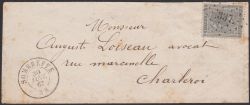 Monsieur
Auguste Loiseau avocat
rue marcinelle
Charleroi
SOMBREFFE